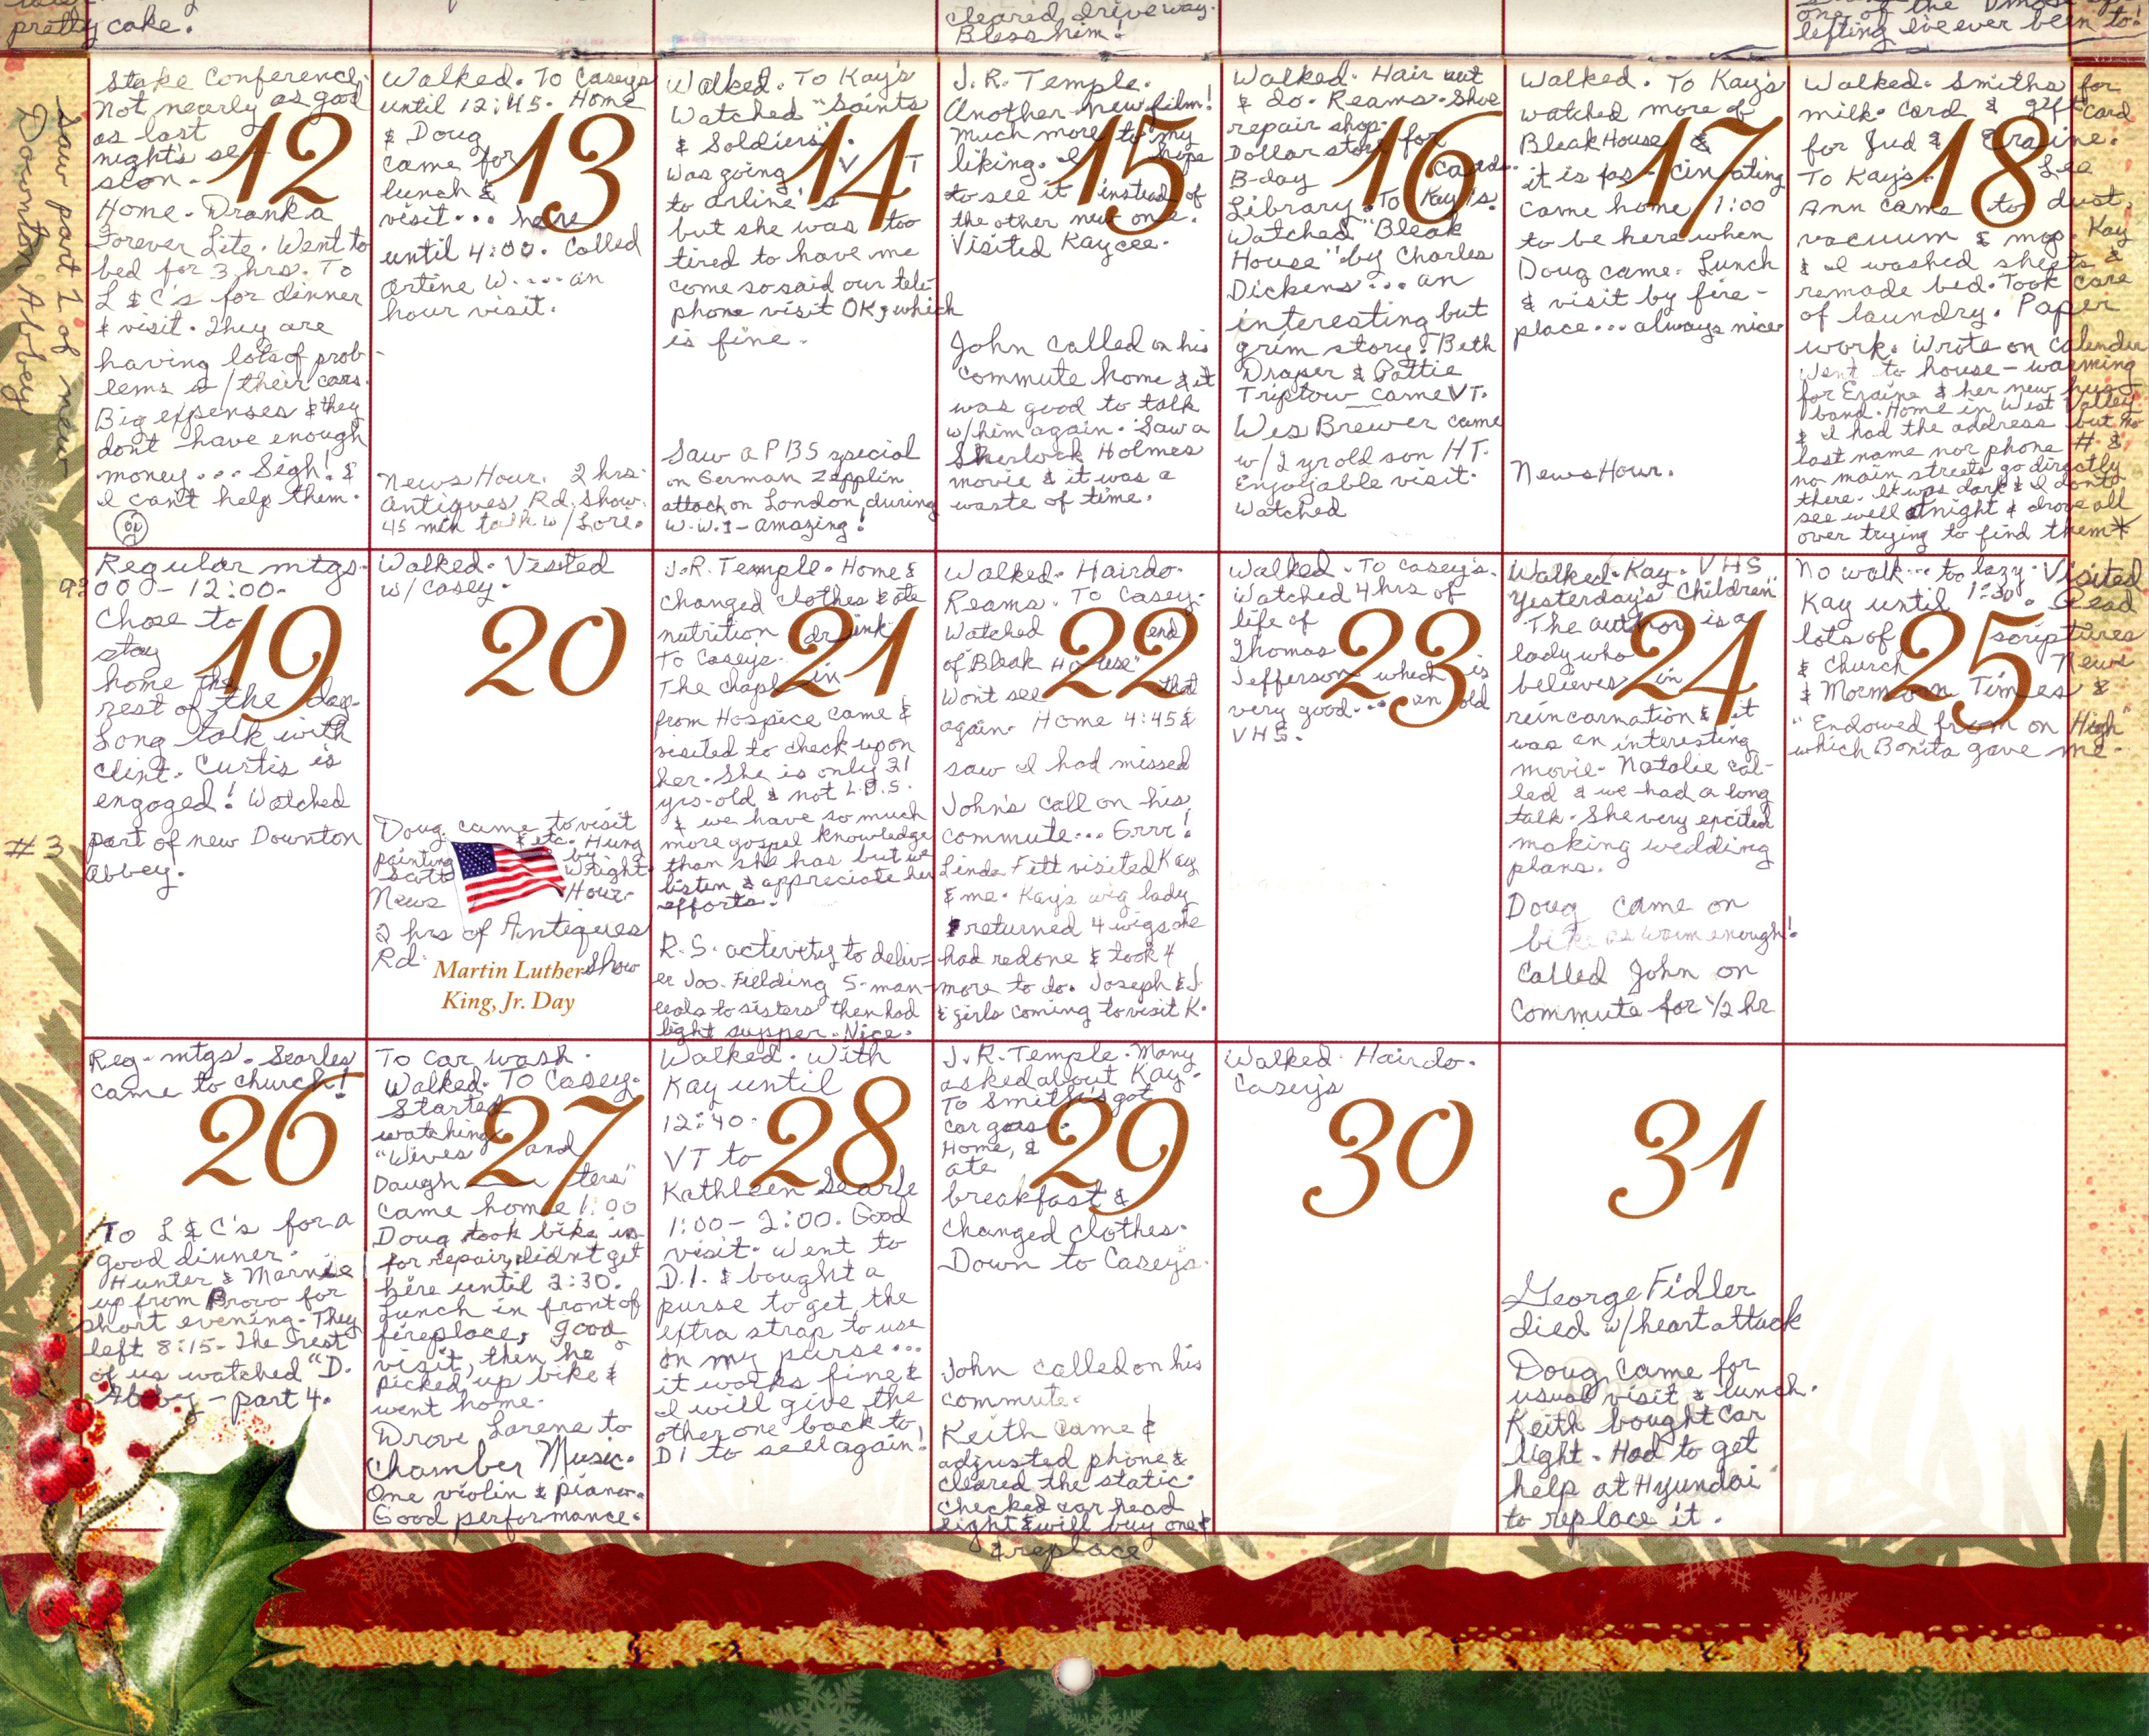 pretty cake!
cleared driveway.
Bless him!
one of the most
lifting I've ever been to!
Saw part 1 of new
Downton Abbey
Stake Conference.
Not nearly as good
as last
night's ses
sion.
12
Home. Drank a
Forever Lite. Went to
bed for 3 hrs. To
L & C's for dinner
& visit. They are
having lots of prob-
lems w/their cars.
Big expenses & they
dont have enough
money... Sigh! &
I can't help them.
Walked. To Casey's
until 12:45. Home
& Doug
came for
lunch &
visit... here
13
until 4:00. Called
Arline W.... an
hour visit.
News Hour. 2 hrs.
Antiques Rd. Show.
45 min talk w/Lore.
Walked. To Kay's
Watched "Saints
& Soldiers".
Was going VT
14
to Arline's
but she was too
tired to have me
come so said our tele-
phone visit OK, which
is fine.
Saw a PBS special
on German Zepplin
attack on London, during
W.W.I - amazing!
J.R. Temple.
Another new film!
Much more to my
liking. I hope
15
to see it instead of
the other new one.
Visited Kaycee.
John called on his
commute home & it
was good to talk
w/him again. Saw a
Sherlock Holmes
movie & it was a
waste of time.
Walked. Hair cut
& do. Reams. Shoe
repair shop.
Dollar store for
B-day cards.
16
Library. To Kay's.
Watched "Bleak
House" by Charles
Dickens... an
interesting but
grim story. Beth
Draper & Pattie
Triptow came VT.
Wes Brewer came
w/2 yr old son HT.
Enjoyable visit.
Watched
Walked. To Kay's
watched more of
Bleak House &
it is fas-cinating
17
Came home 1:00
to be here when
Doug came. Lunch
& visit by fire-
place... always nice
News Hour.
Walked. Smiths for
milk. Card & gift card
for Jud & Eraine.
To Kay's. Lee
18
Ann came to dust,
vacuum & mop. Kay
& I washed sheets &
remade bed. Took care
of laundry. Paper
work. Wrote on calendar
Went to house-warming
for Eraine & her new hus
band. Home in West Valley
& I had the address but no
last name nor phone # &
no main streets go directly
there. It was dark & I dont
see well at night & drove all
over trying to find them*
Regular mtgs.
9:00 - 12:00.
Chose to
stay
home the
19
rest of the day.
Long talk with
Clint. Curtis is
engaged! Watched
#3
part of new Downton
Abbey.
Walked. Visited
w/Casey.
20
Doug came to visit
& etc. Hung
painting by
Scott Wright
News Hour.
2 hrs of Antiques
Rd. Show
Martin Luther
King, Jr. Day
J.R. Temple. Home &
changed clothes & ate
nutrition drink
To Casey's.
21
The chaplain
from Hospice came &
visited to check upon
her. She is only 31
yrs-old & not L.D.S.
& we have so much
more gospel knowledge
than she has but we
listen & appreciate her
efforts.
R.S. activity to deliv-
er Jos. Fielding S. man-
uals to sisters then had
light supper. Nice.
Walked. Hairdo.
Reams. To Casey.
Watched end
of Bleak House"
22
Wont see that
again. Home 4:45 &
saw I had missed
John's call on his
commute... Grrr!
Linda Fitt visited Kay
& me. Kay's wig lady
returned 4 wigs she
had redone & took 4
more to do. Joseph & J.
& girls coming to visit K.
Walked. To Casey's.
Watched 4 hrs of
life of
Thomas
23
Jefferson which is
very good... an old
VHS.
Walked. Kay. VHS
"Yesterday's Children"
The author is a
lady who
believes in
24
reincarnation & it
was an interesting
movie. Natalie cal-
led & we had a long
talk. She very excited
making wedding
plans.
Doug came on
bike as warm enough!
Called John on
commute for 1/2 hr
No walk... too lazy. Visited
Kay until 1:30. Read
lots of scriptures
& Church News
25
& Mormon Times &
"Endowed from on High"
which Bonita gave me.
Reg. mtgs. Searles
came to church!
26
To L & C's for a
good dinner.
Hunter & Marnie
up from Provo for
short evening. They
left 8:15. The rest
of us watched "D.
Abbey - part 4.
To car wash.
Walked. To Casey.
Started
watching
"Wives and
Daughters"
27
came home 1:00
Doug took bike in
for repair, didn't get
here until 2:30.
Lunch in front of
fireplace, good
visit, then he
picked up bike &
went home.
Drove Lorene to
Chamber Music.
One violin & piano.
Good performance.
Walked. With
Kay until
12:40.
VT to
28
Kathleen Searle
1:00 - 2:00. Good
visit. Went to
D.I. & bought a
purse to get the
extra strap to use
on my purse...
it works fine &
I will give the
other one back to
DI to sell again!
J.R. Temple. Many
asked about Kay.
To Smith's got
car gas.
Home, &
ate
29
breakfast &
changed clothes.
Down to Casey's.
John called on his
commute.
Keith came &
adjusted phone &
cleared the static.
Checked car head
light & will buy one &
& replace
Walked. Hairdo.
Casey's
30
31
George Fidler
died w/heart attack
Doug came for
usual visit & lunch.
Keith bought car
light. Had to get
help at Hyundai
to replace it.